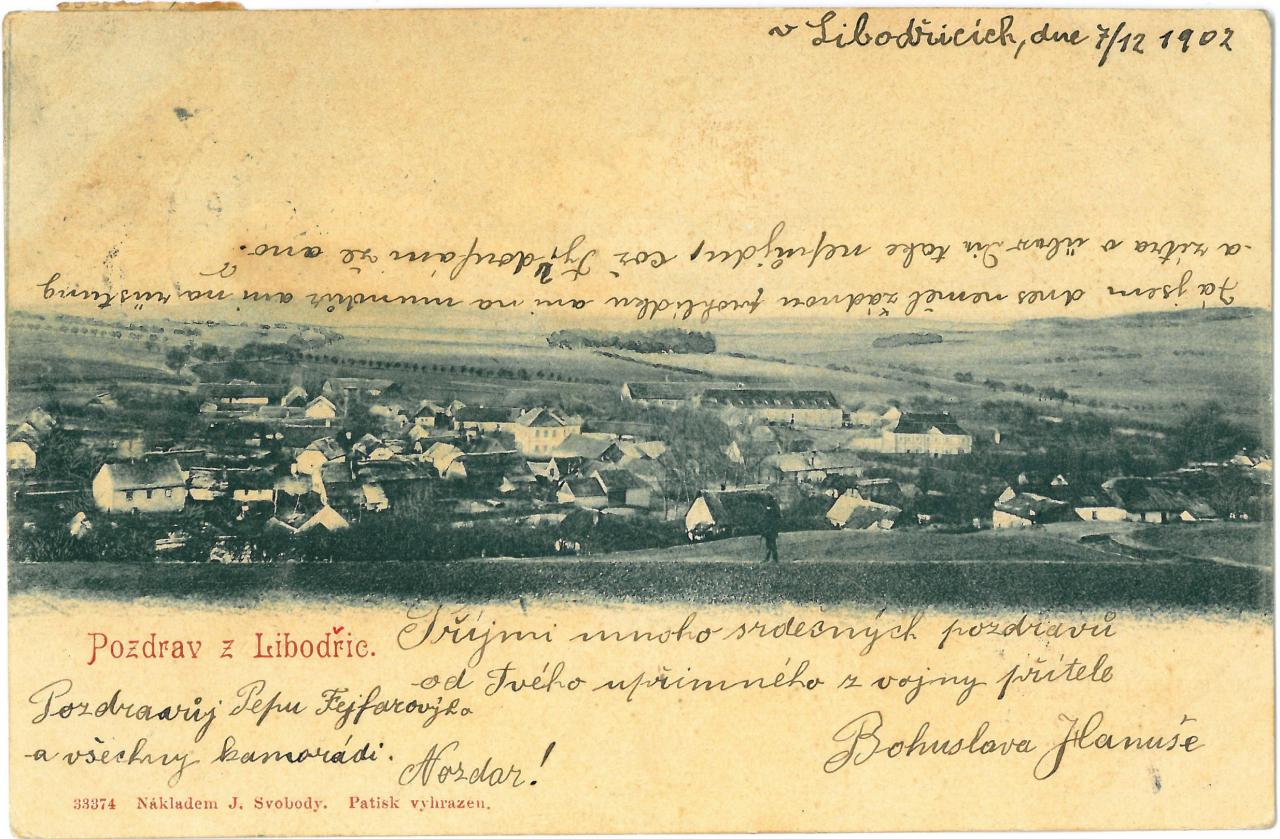 v Libodřicích, dne 7/12 1902
Já jsem dnes neměl žádnou prohlídku ani na mundúr ani na rüstung
a zítra o také nepůjdu, což Ty, doufám že ano.
Pozdrav z Libodřic.
Příjmi mnoho srdečných pozdravů
od Tvého upřimného z vojny přítele
Bohuslava Hanuše
Pozdravůj Pepu Fejfarovýho
a všechny kamorádi.
Nozdar!
33374 Nákladem J. Svobody. Patisk vyhrazen.